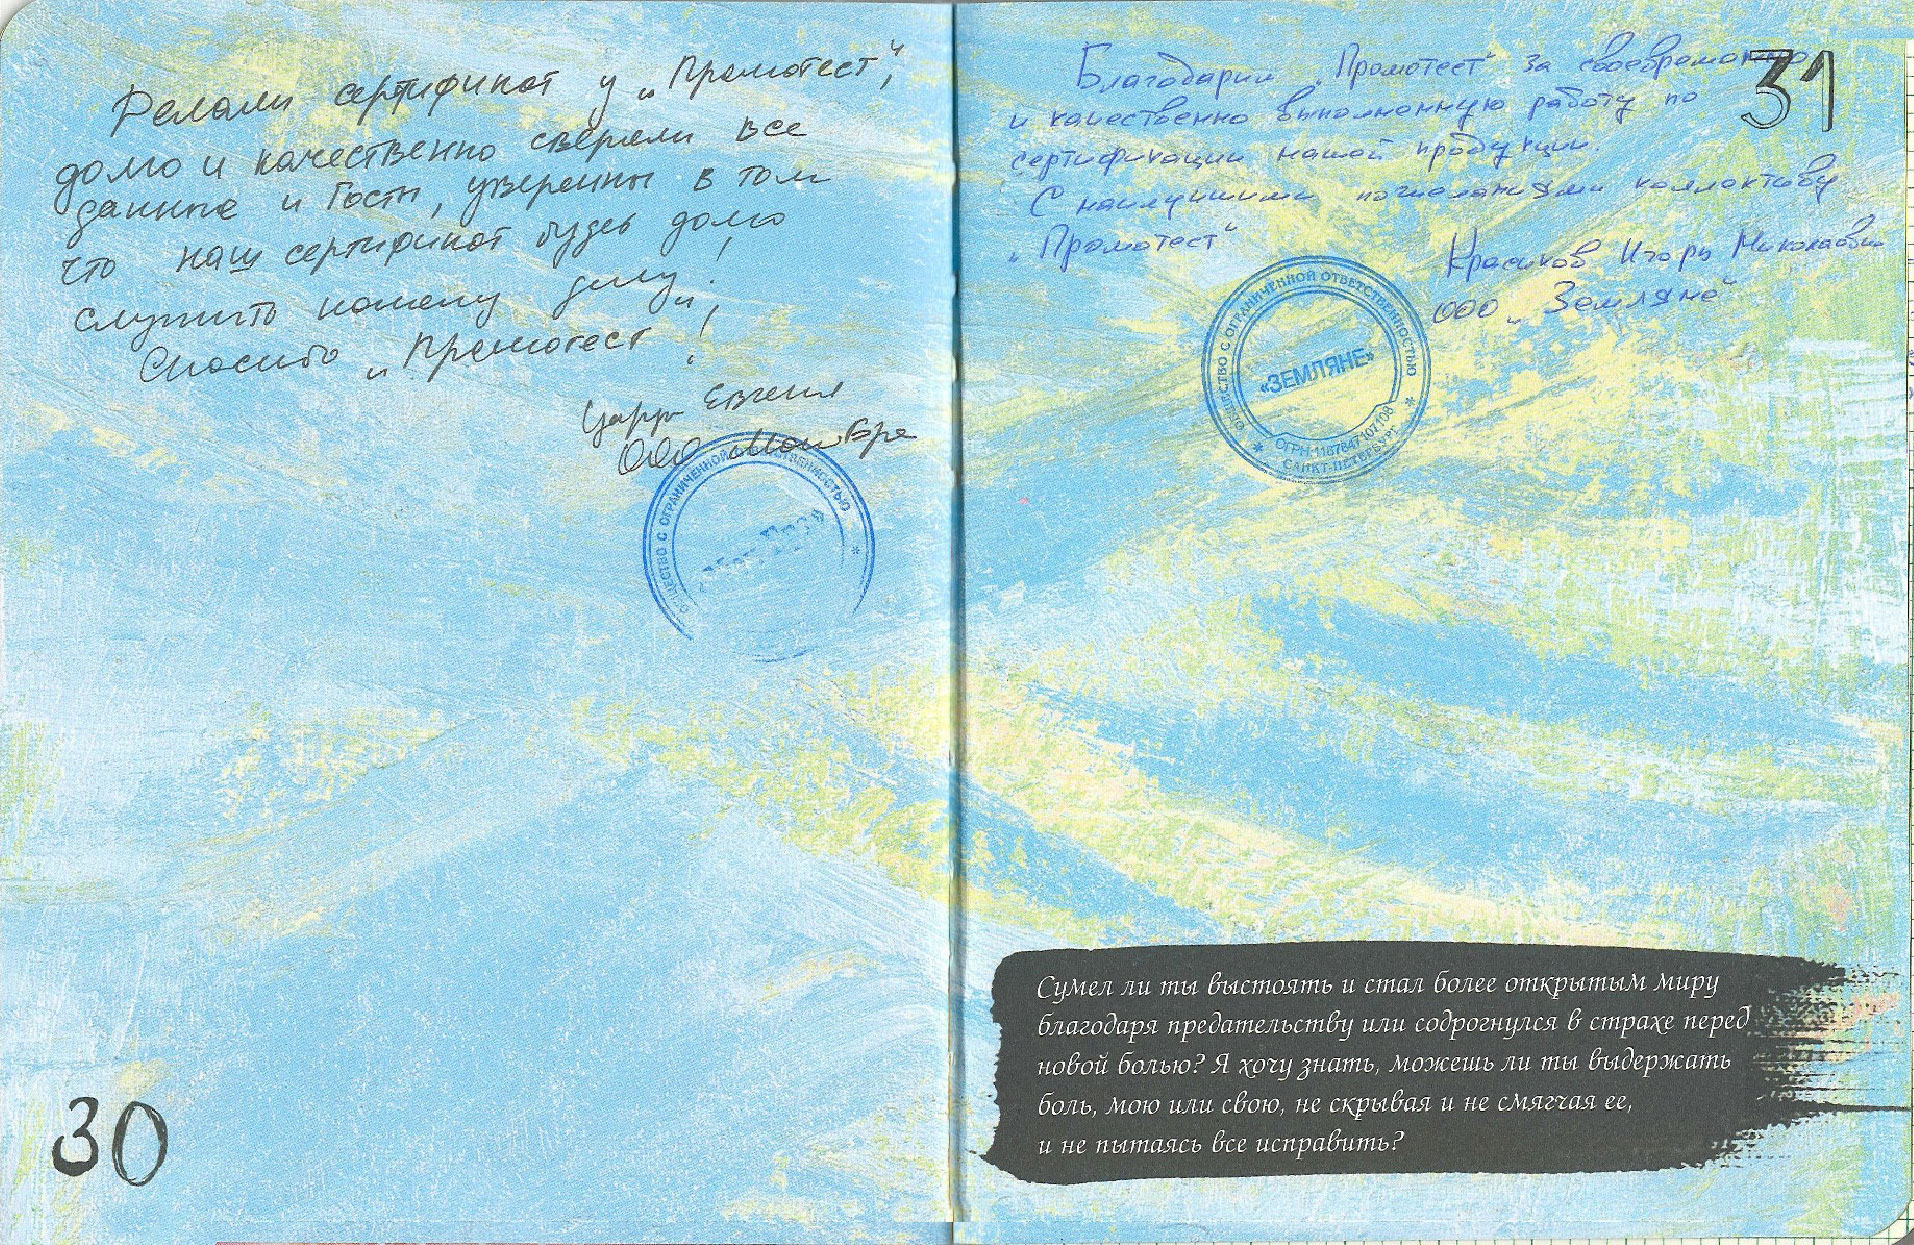 Делали сертификат у „Промотест“,
долго и качественно сверяли все
данные и Госты, уверенны в том
что наш сертификат будет долго
служить нашему делу!
Спасибо „Промотест“!
Евгения
ООО
ОБЩЕСТВО С ОГРАНИЧЕННОЙ ОТВЕТСТВЕННОСТЬЮ *
30
31
Благодарим „Промотест“ за своевременно
и качественно выполненную работу по
сертификации нашей продукции.
С наилучшими пожеланиями коллективу
„Промотест“
Красиков Игорь Николаевич
ООО „Земляне“
ОБЩЕСТВО С ОГРАНИЧЕННОЙ ОТВЕТСТВЕННОСТЬЮ
«ЗЕМЛЯНЕ»
ОГРН 1187847107108
* САНКТ-ПЕТЕРБУРГ *
Сумел ли ты выстоять и стал более открытым миру
благодаря предательству или содрогнулся в страхе перед
новой болью? Я хочу знать, можешь ли ты выдержать
боль, мою или свою, не скрывая и не смягчая ее,
и не пытаясь все исправить?